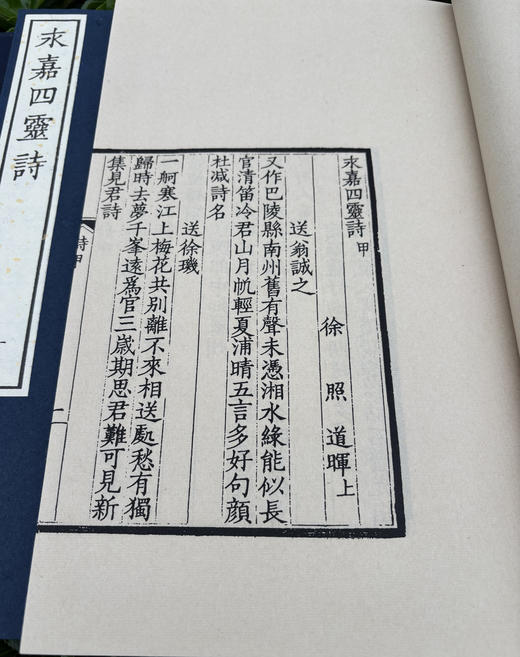 永嘉四靈詩
一
永嘉四靈詩甲
徐照道暉上
送翁誠之
又作巴陵縣南州舊有聲未憑湘水綠能似長
官清笛冷君山月帆輕夏浦晴五言多好句顏
杜减詩名
送徐璣
一舸寒江上梅花共別離不來相送處愁有獨
歸時去夢千峯遠爲官三歲期思君難可見新
集見君詩
詩甲
二